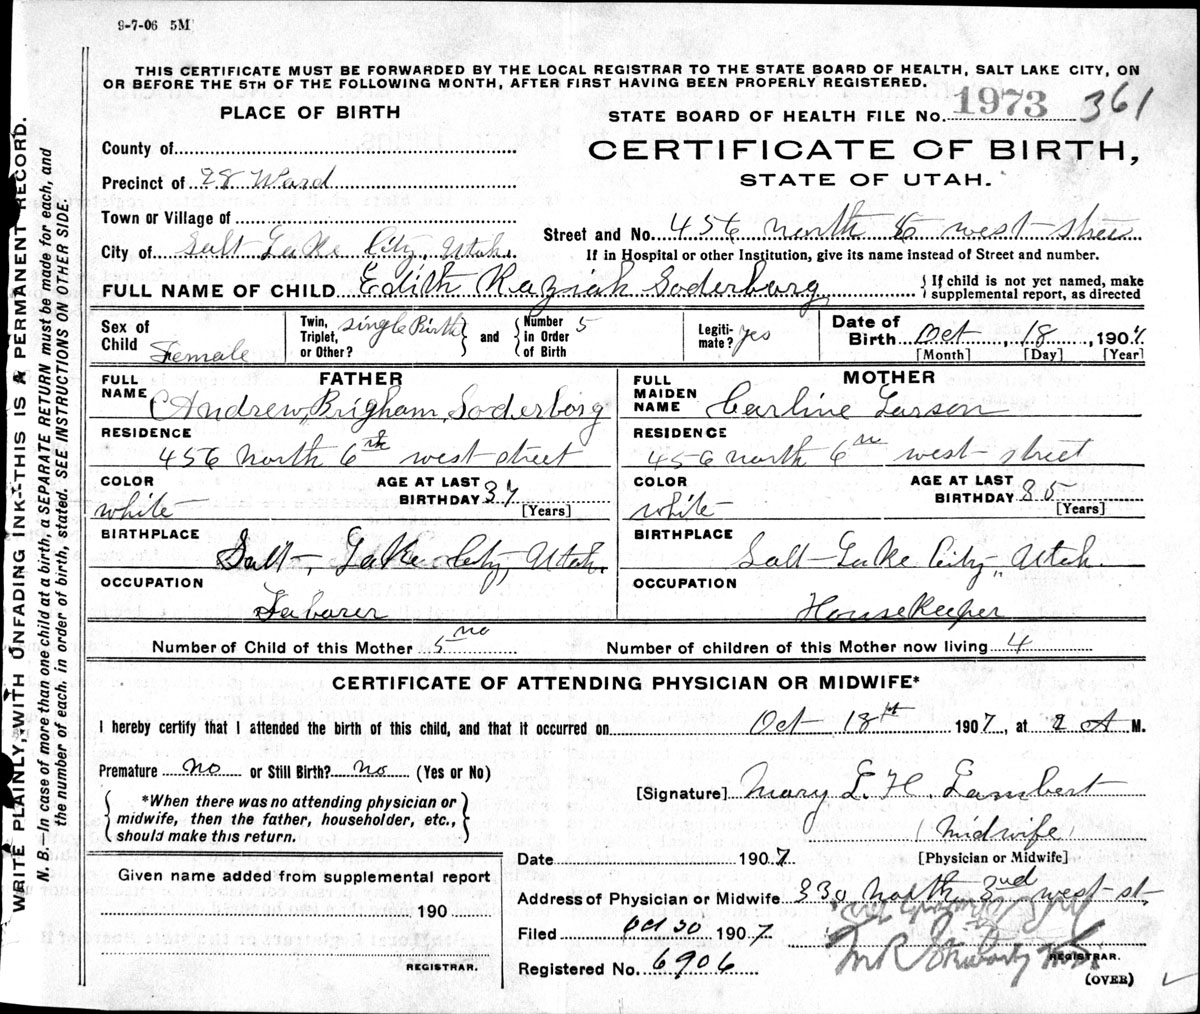 9-7-06 5M
THIS CERTIFICATE MUST BE FORWARDED BY THE LOCAL REGISTRAR TO THE STATE BOARD OF HEALTH, SALT LAKE CITY, ON
OR BEFORE THE 5TH OF THE FOLLOWING MONTH, AFTER FIRST HAVING BEEN PROPERLY REGISTERED.
PLACE OF BIRTH
STATE BOARD OF HEALTH FILE No. 1973 361
County of
CERTIFICATE OF BIRTH,
STATE OF UTAH.
Precinct of 28 Ward
Town or Village of
Street and No. 456 north 6 west street
City of Salt Lake City, Utah.
If in Hospital or other Institution, give its name instead of Street and number.
FULL NAME OF CHILD Edith Kaziah Soderborg
{ If child is not yet named, make
supplemental report, as directed
Sex of Child Female
Twin, Triplet, or Other? single Birth
and
Number in Order of Birth 5
Legiti-mate? yes
Date of Birth Oct, 18, 1907
[Month] [Day] [Year]
FATHER
FULL NAME Andrew Brigham Soderborg
MOTHER
FULL MAIDEN NAME Carline Larson
RESIDENCE
456 north 6th west street
RESIDENCE
456 north 6 west street
COLOR white
AGE AT LAST BIRTHDAY 37 [Years]
COLOR white
AGE AT LAST BIRTHDAY 35 [Years]
BIRTHPLACE
Salt Lake City, Utah.
BIRTHPLACE
Salt Lake City, Utah.
OCCUPATION
Laborer
OCCUPATION
HouseKeeper
Number of Child of this Mother 5
Number of children of this Mother now living 4
CERTIFICATE OF ATTENDING PHYSICIAN OR MIDWIFE*
I hereby certify that I attended the birth of this child, and that it occurred on Oct 18th 1907, at 2 A M.
Premature no or Still Birth? no (Yes or No)
*When there was no attending physician or
midwife, then the father, householder, etc.,
should make this return.
[Signature] Mary L. H. Lambert
(Midwife)
[Physician or Midwife]
Date 1907
Given name added from supplemental report
190
REGISTRAR.
Address of Physician or Midwife 330 north 2nd west st.
Filed Oct 30 1907
Registered No. 6906
REGISTRAR.
(OVER)
WRITE PLAINLY, WITH UNFADING INK—THIS IS A PERMANENT RECORD.
N. B. In case of more than one child at a birth, a SEPARATE RETURN must be made for each, and
the number of each, in order of birth, stated. SEE INSTRUCTIONS ON OTHER SIDE.